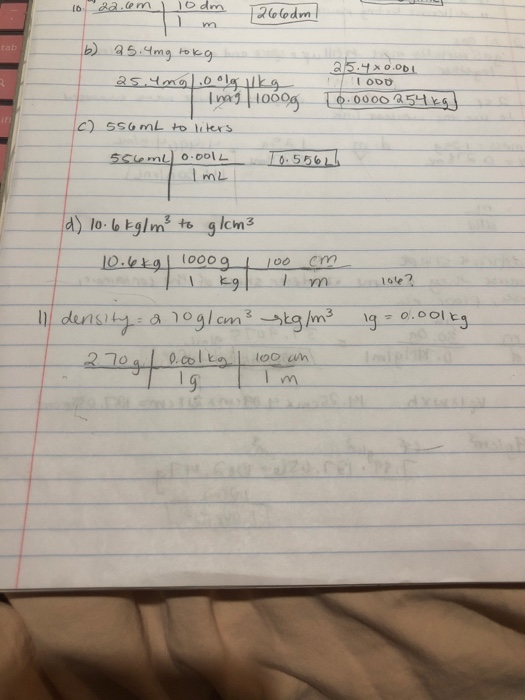 10 22.6m | 10 dm 266dm
1 m
b) 25.4mg to kg
25.4mg | .001g | 1kg 25.4x0.001
1mg | 1000g 1000
0.0000254kg
c) 556mL to liters
556mL | 0.001L 0.556L
1 mL
d) 10.6 kg/m³ to g/cm³
10.6kg | 1000g | 100 cm
1 kg | 1 m 106?
11 density = 270g/cm³ → kg/m³ 1g = 0.001kg
270g | 0.001kg | 100 cm
1g | 1 m
tab